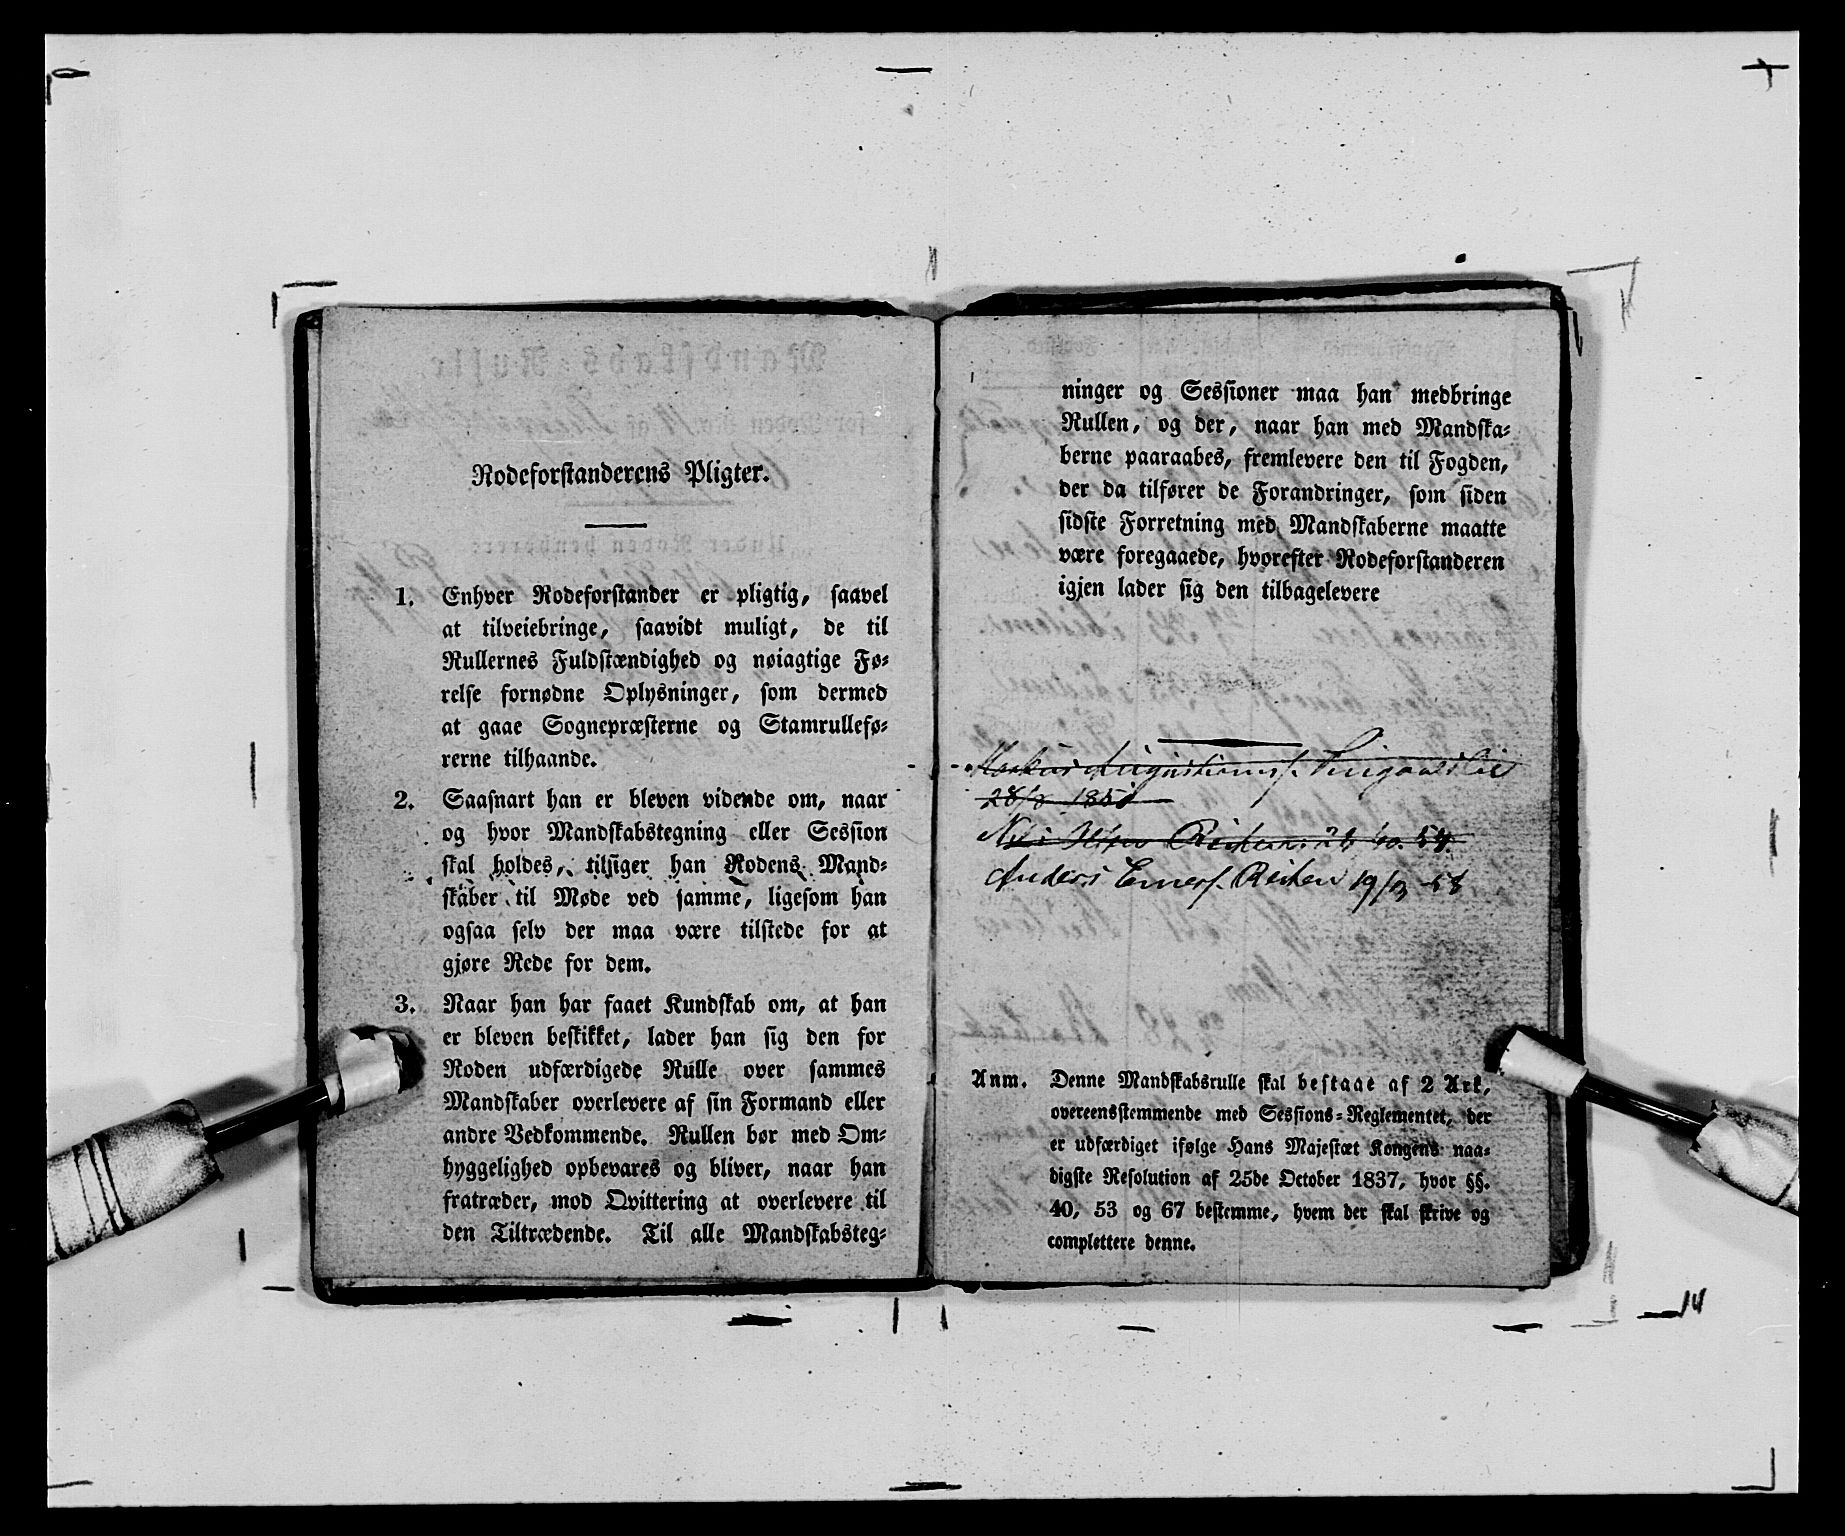 Rodeforstanderens Pligter.
1. Enhver Rodeforstander er pligtig, saavel
at tilveiebringe, saavidt muligt, de til
Rullernes Fuldstændighed og nøiagtige Fø-
relse fornødne Oplysninger, som dermed
at gaae Sognepræsterne og Stamrullefø-
rerne tilhaande.
2. Saasnart han er bleven vidende om, naar
og hvor Mandskabstegning eller Session
skal holdes, tilsiger han Rodens Mand-
skaber til Møde ved samme, ligesom han
ogsaa selv der maa være tilstede for at
gjøre Rede for dem.
3. Naar han har faaet Kundskab om, at han
er bleven beskikket, lader han sig den for
Roden udfærdigede Rulle over sammes
Mandskaber overlevere af sin Formand eller
andre Vedkommende. Rullen bør med Om-
hyggelighed opbevares og bliver, naar han
fratræder, mod Qvittering at overlevere til
den Tiltrædende. Til alle Mandskabsteg-
ninger og Sessioner maa han medbringe
Rullen, og der, naar han med Mandska-
berne paaraabes, fremlevere den til Fogden,
der da tilfører de Forandringer, som siden
sidste Forretning med Mandskaberne maatte
være foregaaede, hvorefter Rodeforstanderen
igjen lader sig den tilbagelevere
28/8 1851
Reiten 26/10. 54.
Anders Einersf. Reiten 19/3 -58
Anm. Denne Mandskabsrulle skal bestaae af 2 Ark,
overeensstemmende med Sessions-Reglementet, der
er udfærdiget ifølge Hans Majestæt Kongens naa-
digste Resolution af 25de October 1837, hvor §§.
40, 53 og 67 bestemme, hvem der skal skrive og
complettere denne.
14